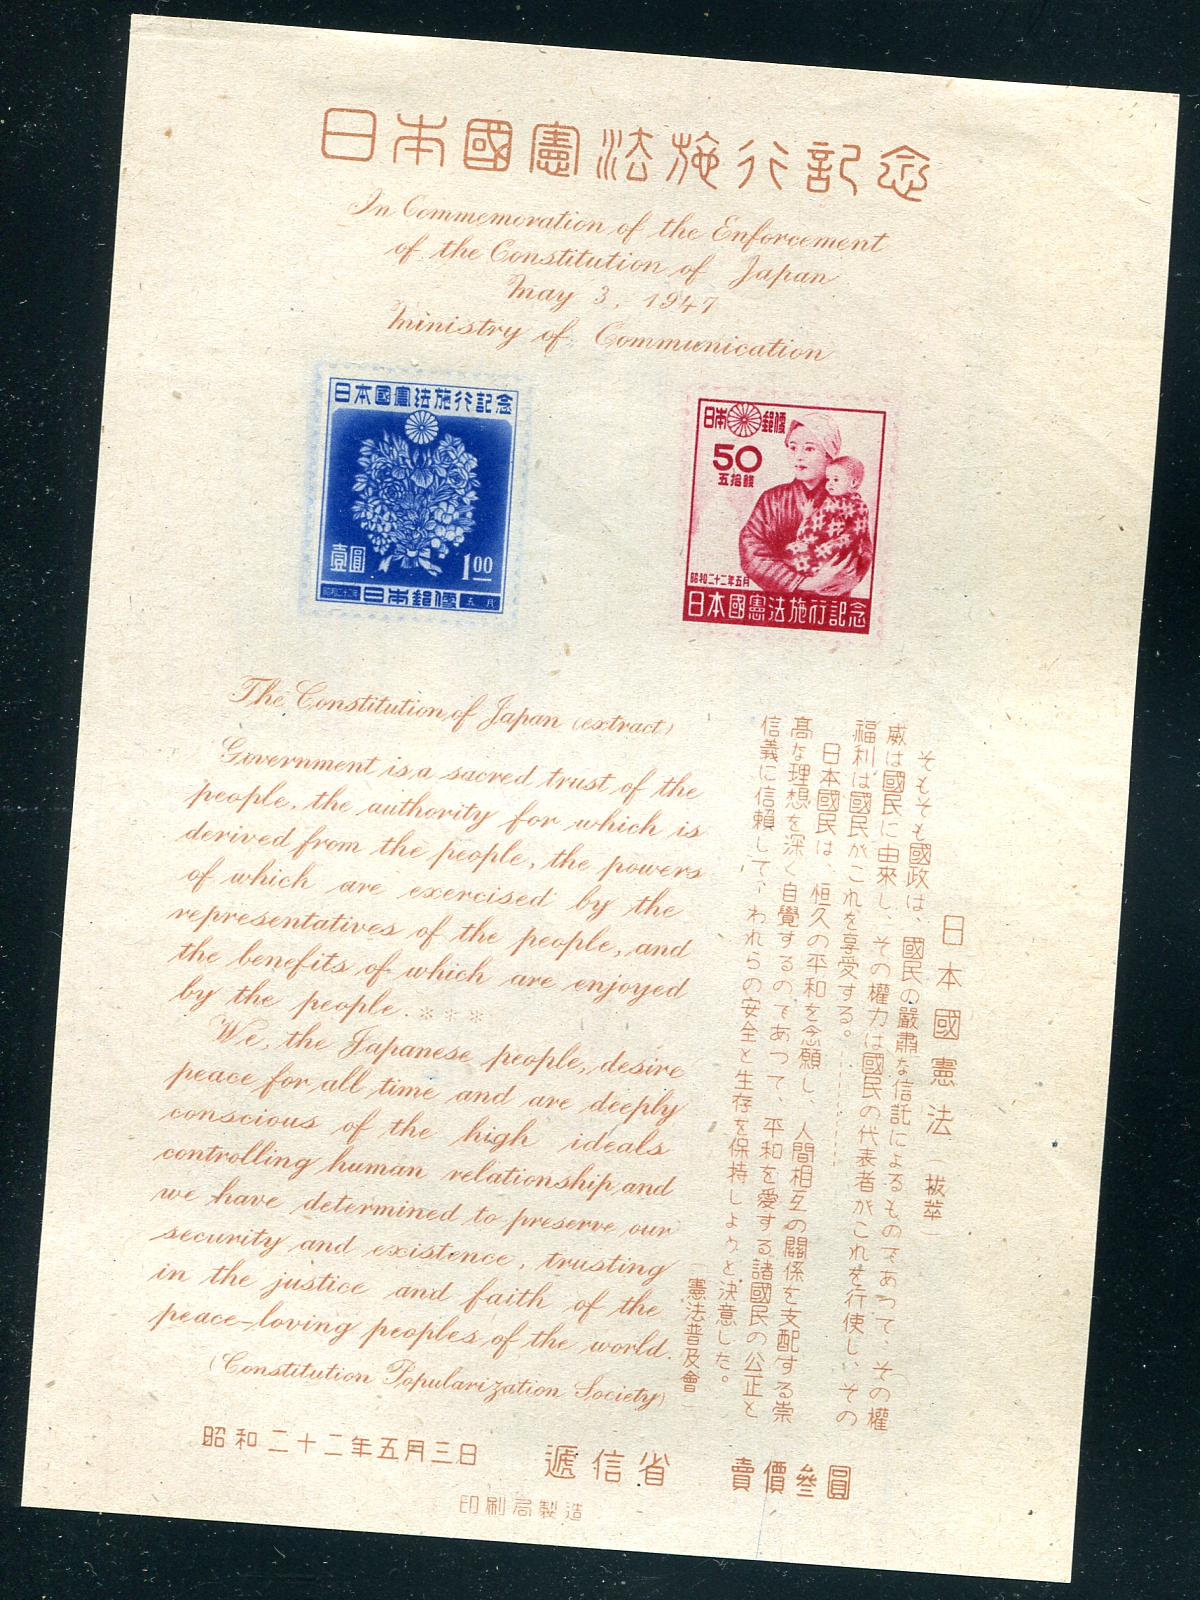 日本國憲法施行記念
In Commemoration of the Enforcement
of the Constitution of Japan
May 3, 1947
Ministry of Communication
日本國憲法施行記念
壹圓
1.00
昭和二十二年
日本郵便
五月
日本郵便
50
五拾錢
昭和二十二年五月
日本國憲法施行記念
The Constitution of Japan (extract)
Government is a sacred trust of the
people, the authority for which is
derived from the people, the powers
of which are exercised by the
representatives of the people, and
the benefits of which are enjoyed
by the people. * * *
We, the Japanese people, desire
peace for all time and are deeply
conscious of the high ideals
controlling human relationship, and
we have determined to preserve our
security and existence, trusting
in the justice and faith of the
peace-loving peoples of the world.
(Constitution Popularization Society)
日本國憲法（拔萃）
そもそも國政は、國民の嚴肅な信託によるものであつて、その權
威は國民に由來し、その權力は國民の代表者がこれを行使し、その
福利は國民がこれを享受する。…………
日本國民は、恒久の平和を念願し、人間相互の關係を支配する崇
高な理想を深く自覺するのであつて、平和を愛する諸國民の公正と
信義に信賴して、われらの安全と生存を保持しようと決意した。
（憲法普及會）
昭和二十二年五月三日 遞信省 賣價參圓
印刷局製造